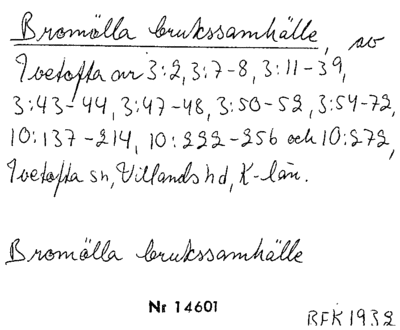 Bromölla brukssamhälle, av
Ivetofta nr 3:2, 3:7-8, 3:11-39,
3:43-44, 3:47-48, 3:50-52, 3:54-72,
10:137-214, 10:222-256 och 10:272,
Ivetofta sn, Villands hd, K-län.
Bromölla brukssamhälle
Nr 14601
RFK 1932